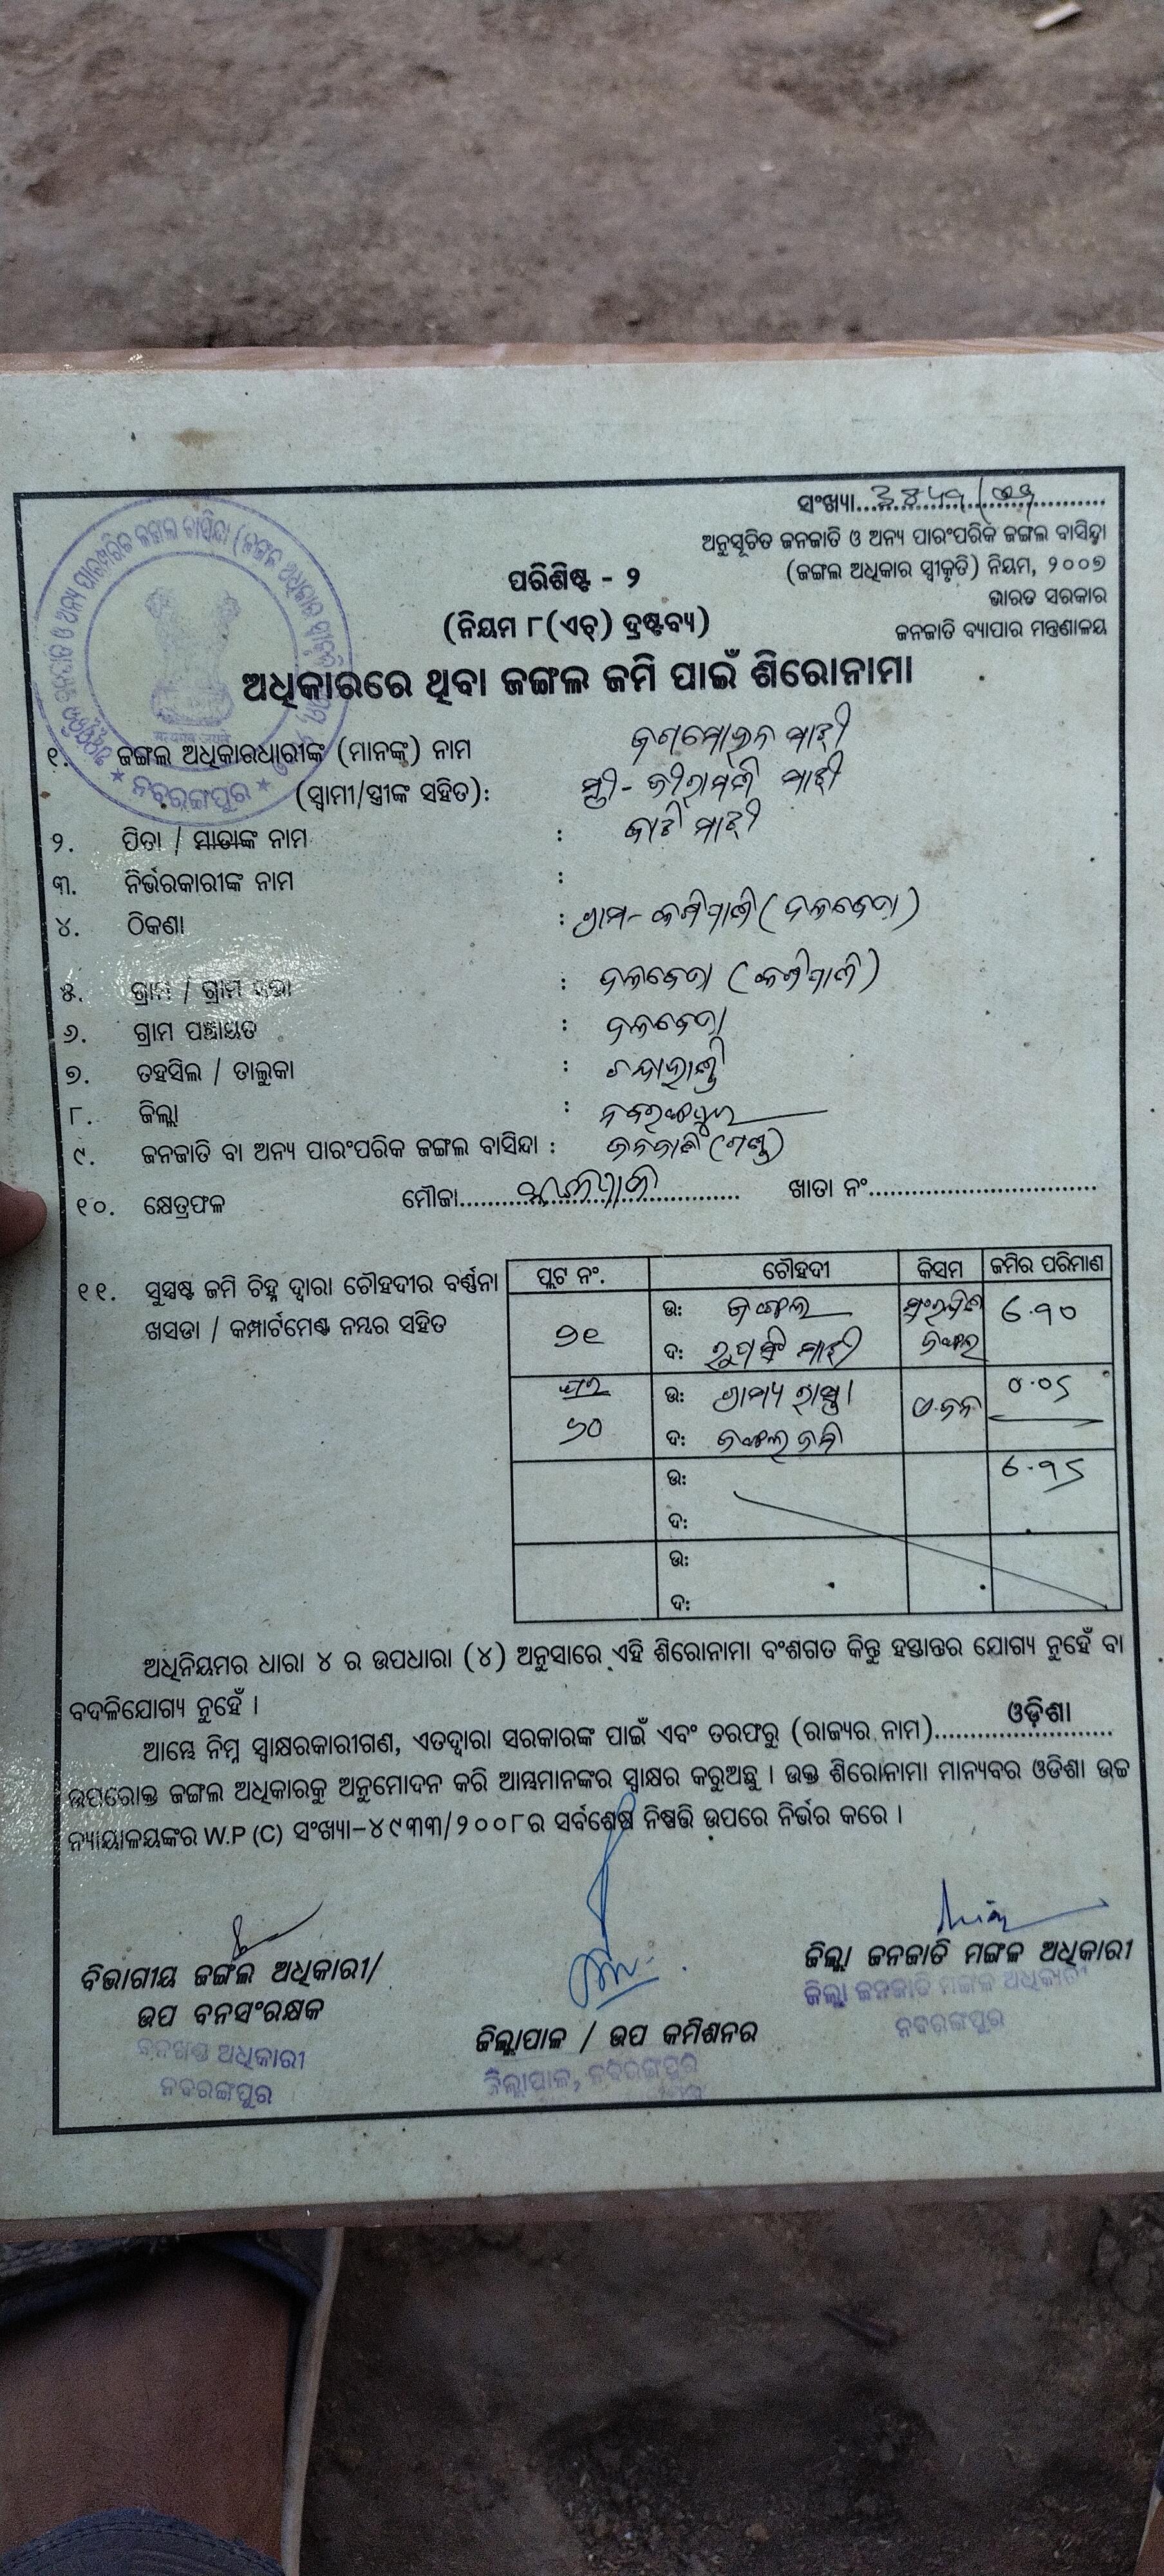 ସଂଖ୍ୟା
ଅନୁସୂଚିତ ଜନଜାତି ଓ ଅନ୍ୟ ପାରଂପରିକ ଜଙ୍ଗଲ ବାସିନ୍ଦା
(ଜଙ୍ଗଲ ଅଧିକାର ସ୍ୱୀକୃତି) ନିୟମ, ୨୦୦୭
ଭାରତ ସରକାର
ଜନଜାତି ବ୍ୟାପାର ମନ୍ତ୍ରଣାଳୟ
ପରିଶିଷ୍ଟ - ୨
(ନିୟମ ୮(ଏଚ୍) ଦ୍ରଷ୍ଟବ୍ୟ)
ଅଧିକାରରେ ଥିବା ଜଙ୍ଗଲ ଜମି ପାଇଁ ଶିରୋନାମା
୧. ଜଙ୍ଗଲ ଅଧିକାରଧାରୀଙ୍କ (ମାନଙ୍କ) ନାମ ଜଗମୋହନ ମାଝୀ
(ସ୍ୱାମୀ/ସ୍ତ୍ରୀଙ୍କ ସହିତ): ସ୍ତ୍ରୀ- ମାଝୀ
୨. ପିତା / ମାତାଙ୍କ ନାମ : ମାଝୀ
୩. ନିର୍ଭରକାରୀଙ୍କ ନାମ :
୪. ଠିକଣା : ଗ୍ରାମ-
୫. ଗ୍ରାମ / ଗ୍ରାମ ସଭା :
୬. ଗ୍ରାମ ପଞ୍ଚାୟତ :
୭. ତହସିଲ / ତାଲୁକା : ଚନ୍ଦାହାଣ୍ଡି
୮. ଜିଲ୍ଲା : ନବରଙ୍ଗପୁର
୯. ଜନଜାତି ବା ଅନ୍ୟ ପାରଂପରିକ ଜଙ୍ଗଲ ବାସିନ୍ଦା : ଜନଜାତି (ଗଣ୍ଡ)
୧୦. କ୍ଷେତ୍ରଫଳ ମୌଜା ଖାତା ନଂ
୧୧. ସୁସ୍ପଷ୍ଟ ଜମି ଚିହ୍ନ ଦ୍ୱାରା ଚୌହଦୀର ବର୍ଣ୍ଣନା
ଖସଡା / କମ୍ପାର୍ଟମେଣ୍ଟ ନମ୍ବର ସହିତ
ପ୍ଲଟ ନଂ. ଚୌହଦୀ କିସମ ଜମିର ପରିମାଣ
ଉ: ଜଙ୍ଗଲ ସଂରକ୍ଷିତ ଜଙ୍ଗଲ ୬.୩୦
ଦ: ମାଝୀ
ଉ: ଗ୍ରାମ୍ୟ ରାସ୍ତା
୬୦ ଦ: ଜଙ୍ଗଲ ଜମି
ଉ:
ଦ:
ଉ:
ଦ:
ଅଧିନିୟମର ଧାରା ୪ ର ଉପଧାରା (୪) ଅନୁସାରେ ଏହି ଶିରୋନାମା ବଂଶଗତ କିନ୍ତୁ ହସ୍ତାନ୍ତର ଯୋଗ୍ୟ ନୁହେଁ ବା
ବଦଳିଯୋଗ୍ୟ ନୁହେଁ ।
ଆମ୍ଭେ ନିମ୍ନ ସ୍ୱାକ୍ଷରକାରୀଗଣ, ଏତଦ୍ୱାରା ସରକାରଙ୍କ ପାଇଁ ଏବଂ ତରଫରୁ (ରାଜ୍ୟର ନାମ) ଓଡ଼ିଶା
ଉପରୋକ୍ତ ଜଙ୍ଗଲ ଅଧିକାରକୁ ଅନୁମୋଦନ କରି ଆମ୍ଭମାନଙ୍କର ସ୍ୱାକ୍ଷର କରୁଅଛୁ । ଉକ୍ତ ଶିରୋନାମା ମାନ୍ୟବର ଓଡିଶା ଉଚ୍ଚ
ନ୍ୟାୟାଳୟଙ୍କର W.P (C) ସଂଖ୍ୟା-୪୯୩୩/୨୦୦୮ର ସର୍ବଶେଷ ନିଷ୍ପତ୍ତି ଉପରେ ନିର୍ଭର କରେ ।
ବିଭାଗୀୟ ଜଙ୍ଗଲ ଅଧିକାରୀ/
ଉପ ବନସଂରକ୍ଷକ
ବନଖଣ୍ଡ ଅଧିକାରୀ
ନବରଙ୍ଗପୁର
ଜିଲ୍ଲାପାଳ / ଉପ କମିଶନର
ଜିଲ୍ଲାପାଳ, ନବରଙ୍ଗପୁର
ଜିଲ୍ଲା ଜନଜାତି ମଙ୍ଗଳ ଅଧିକାରୀ
ଜିଲ୍ଲା ଜନଜାତି ମଙ୍ଗଳ ଅଧିକାରୀ
ନବରଙ୍ଗପୁର